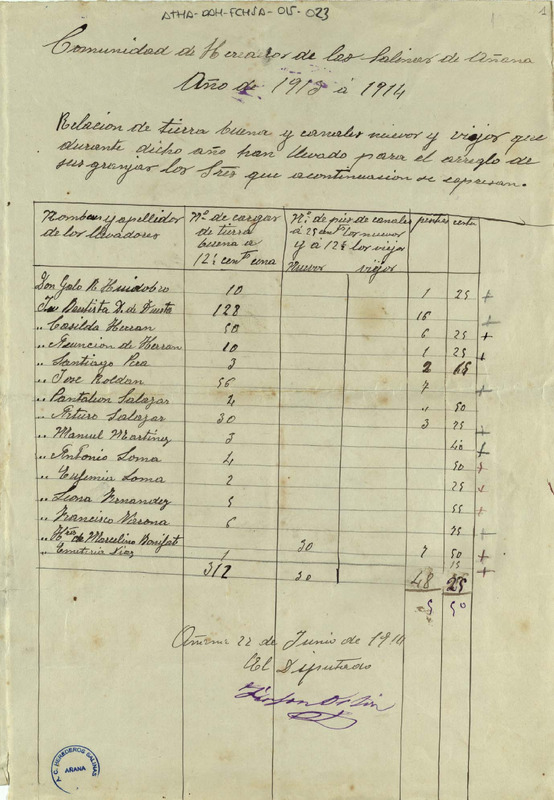 ATHA-DAH-FCHSA-015-023
1
Comunidad de Herederos de las Salinas de Añana
Año de 1913 á 1914
Relacion de tierra buena y canales nuevos y viejos que
durante dicho año han llevado para el arreglo de
sus granjas los Sres que acontinuasion se expresan.
Nombres y apellidos de los llevadores | Nº de cargas de tierra buena a 12½ centº una | Nº de pies de canales á 25 centº los nuevos y á 12½ los viejos | pesetas | cents
Nuevos | viejos
Don Galo R Huidobro 10 1 25 +
Juan Bautista 128 16 +
" Casilda Herran 50 6 25 +
" Asuncion de Herran 10 1 25 +
" Santiago Pea 3 2
" Jose Roldan 56 7 +
" Pantaleon Salazar 4 " 50
" Arturo Salazar 30 3 75 +
" Manuel Martinez 3 40 +
" Antonio Loma 4 50 +
" Eufemia Loma 2 25 +
" Leona Fernandez 5 65 +
" Francisco Varona 6 75 +
" Hros de Marcelino Bonifat 30 7 50 +
" Emeteria Diaz 1 15 +
312 30 48 25
5 50
Añana 22 de Junio de 1914
El Diputado
A.C. HEREDEROS SALINAS
AÑANA